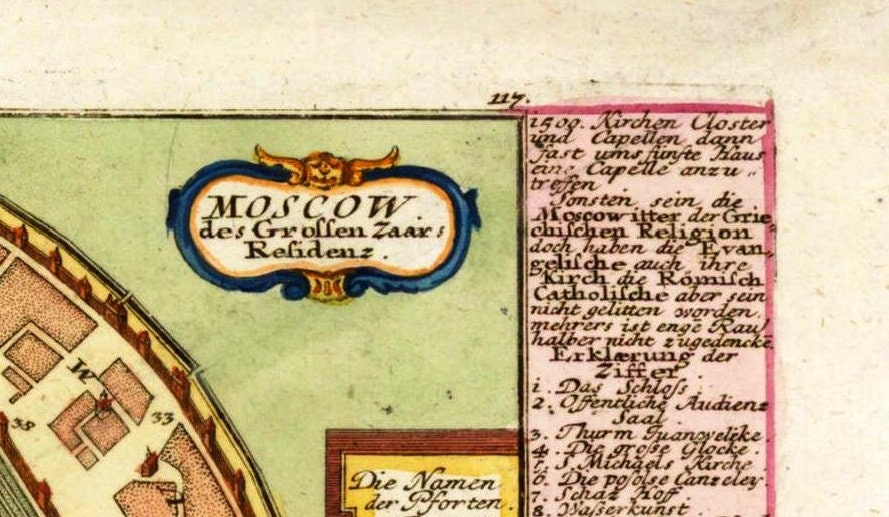 117.
MOSCOW.
des Grossen Zaars
Residenz.
1500. Kirchen Closter
und Capellen dann
fast ums fünfte Haus
eine Capelle anzu-
treffen.
Sonsten sein die
Moscowitter der Grie-
chischen Religion
doch haben die Evan-
gelische auch ihre
Kirch die Römisch
Catholische aber sein
nicht gelitten worden,
mehrers ist enge Rau
halber nicht zugedencke
Erklærung der
Ziffer.
1. Das Schloss
2. Offentliche Audienz
Saal
3. Thurm Juanwelike.
4. Die grose Glocke.
5. S. Michaels Kirche
6. Die posolse Canzeley
7. Schaz Hoff
8. Wasserkunst
W
33
35
Die Namen
der Pforten.